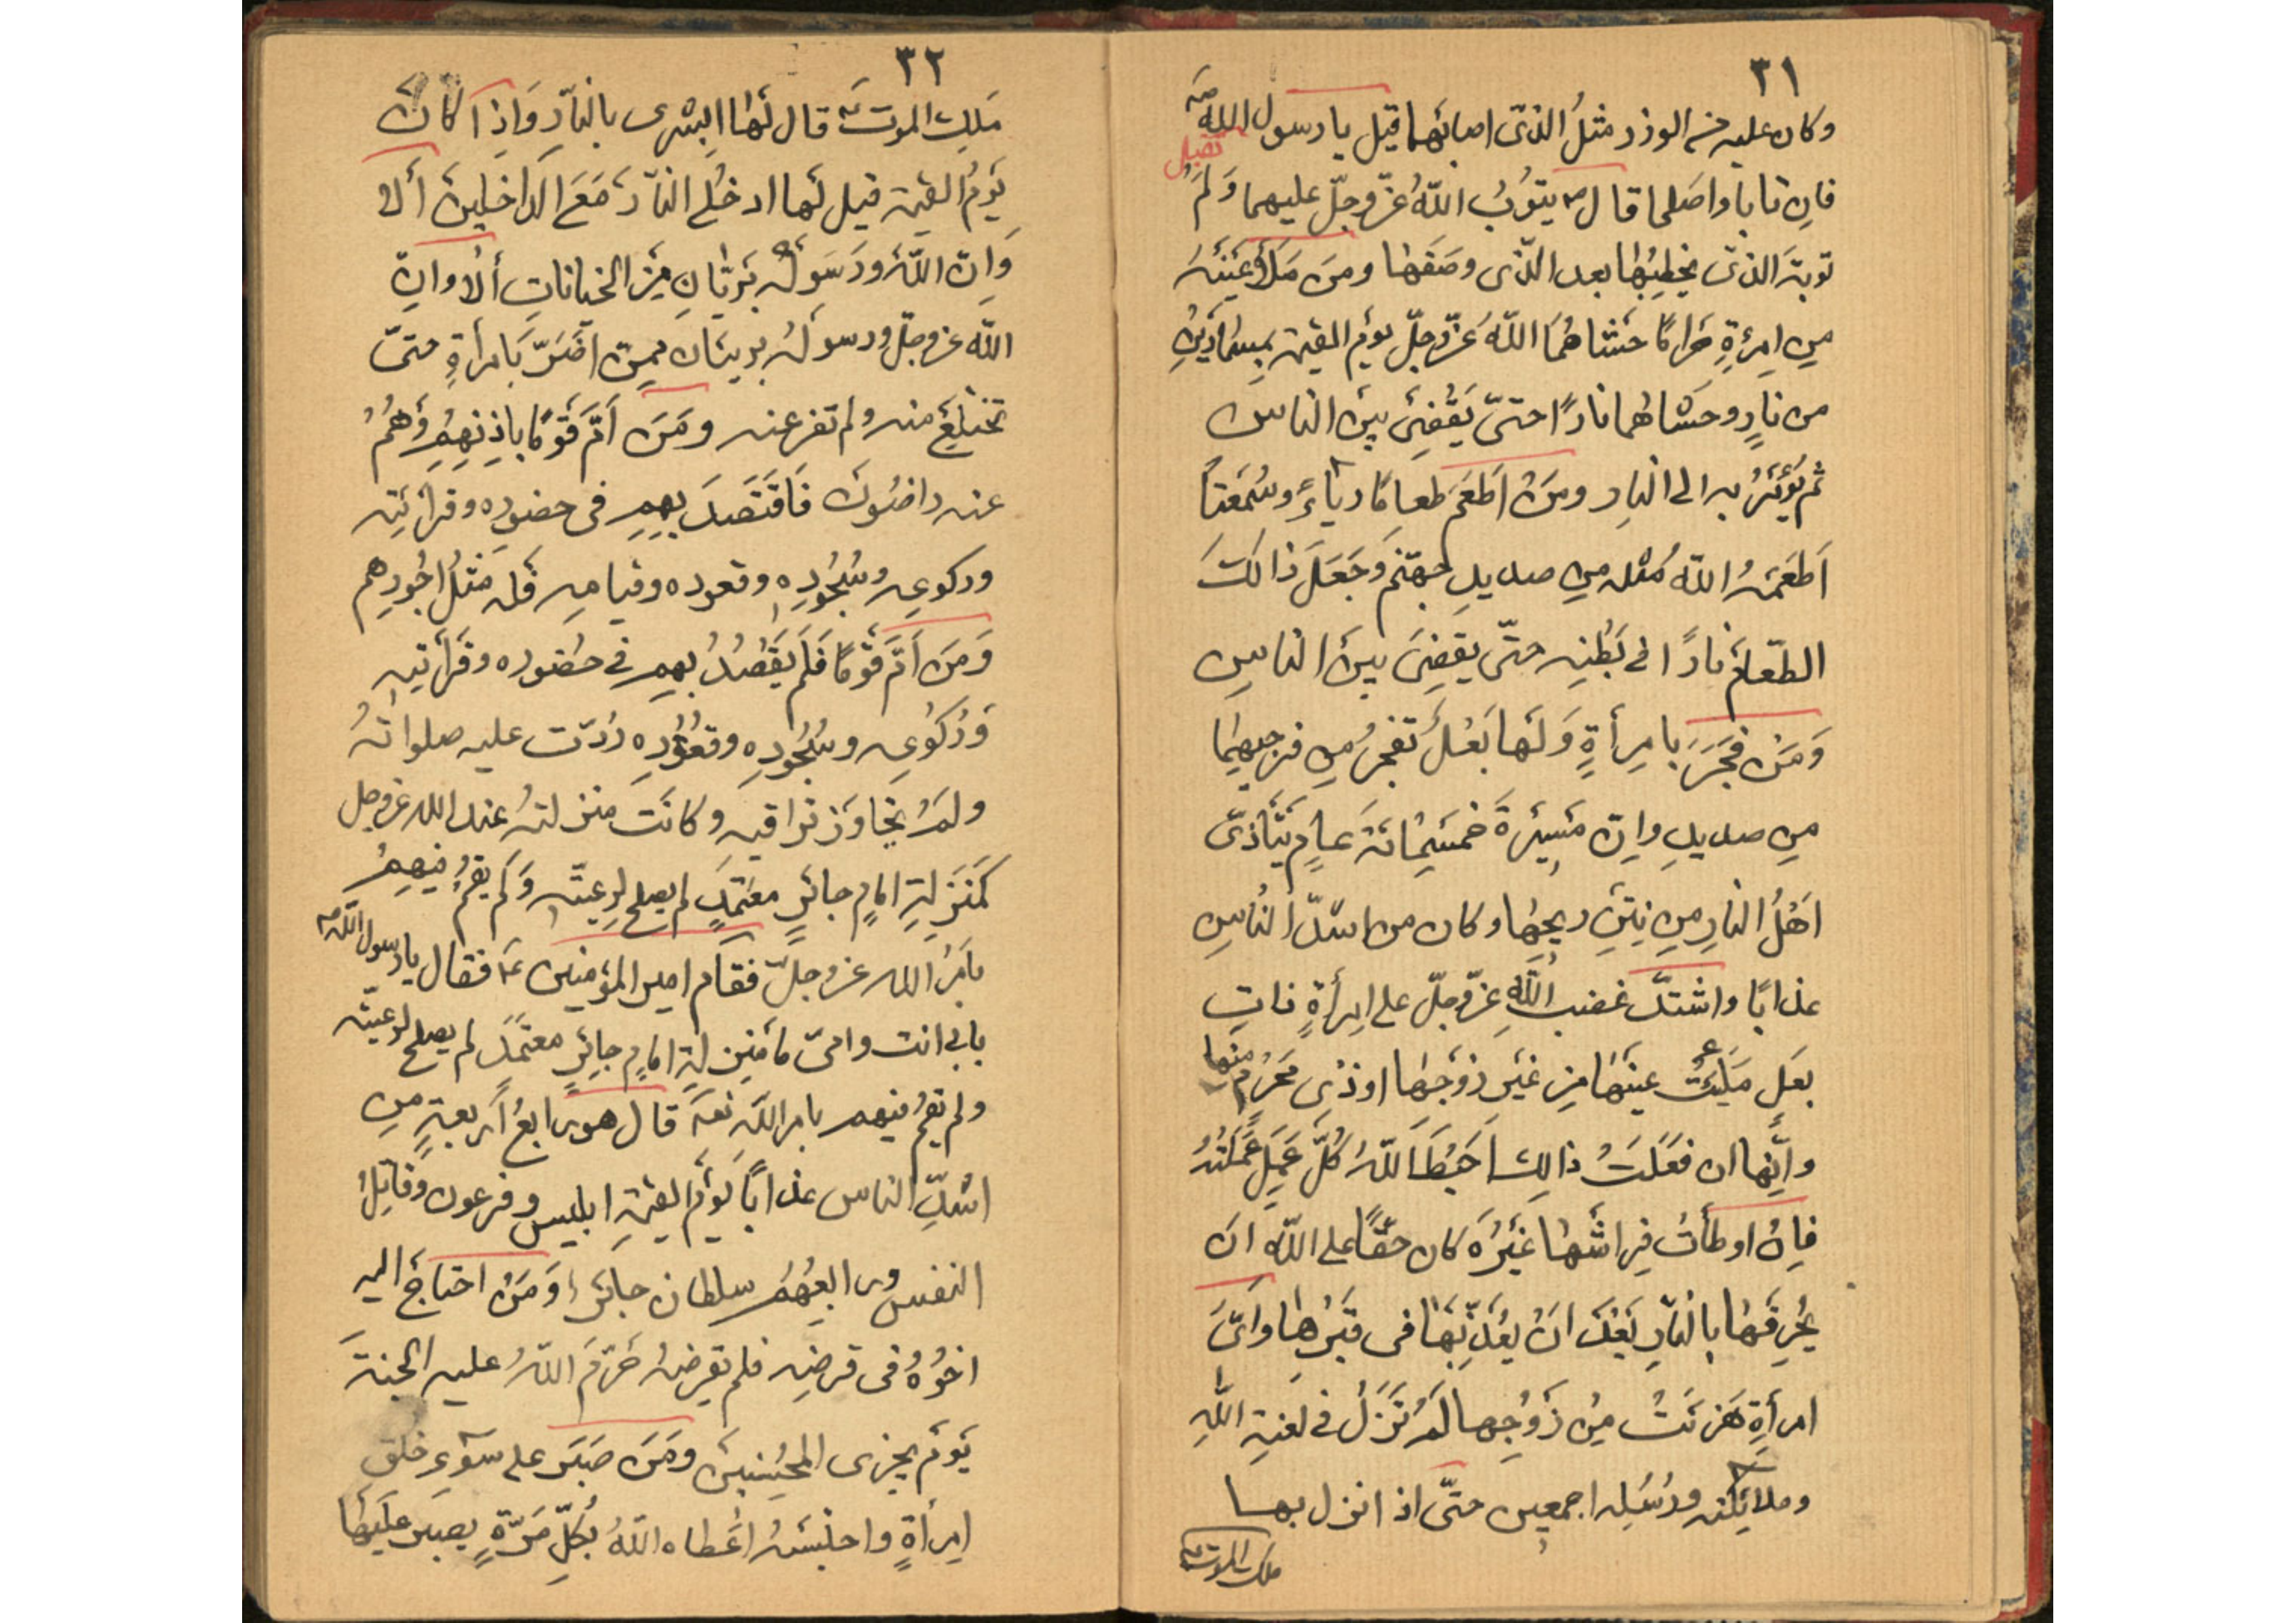 ٣١
وكان عليه من الوزر مثلُ الذّى اصابَهَا قيل يا رسول اللهِ ص
فاِن تابا واصَلحا قال ص يتوُبُ اللّهُ عزّ وجلّ عليهما وَلَمْ تقبل
توبتَه الذّى يخطِبُها بعد الّذى وصَفَها ومَن مَلأَ عَيْنَيْهِ
مِن اِمرَءةٍ حَرامًا حَشاهُمَا اللّهُ عَزّ وجلّ يومَ القيٰمة بمِسْمَارَيْنِ
من نارٍ وحَشاهُما نارًا حتىّ يَقْضِىَ بينَ الناس
ثم يُؤْمَرُ به الى النارِ ومَنْ اَطْعَمَ طعامًا رِياءً وسُمْعَةً
اَطْعَمَهُ اللّه مُثله مِن صديدِ جهنّم وَجَعَلَ ذالكَ
الطّعامَ نارًا فى بَطْنِه حتّى يقضِىَ بينَ الناسِ
وَمَنْ فَجَرَ بامِرأةٍ وَلَها بَعْلٌ تفجرُ مِن فرجيهِما
مِن صديدٍ واِنّ مَسِيْرَةَ خَمْسَمِائةَ عامٍ يَتَأذّى
اَهْلُ النارِ مِن نِتَنِ ريحِها وكان من اشدّ النُاسِ
عذابًا واشتدّ غضب اللّهِ عزّ وجلّ على اِمرأةٍ ذاتِ
بعَلٍ مَلَئَتْ عينَها مِن غَيْرِ زَوْجِها او ذى مَحْرَمٍ منها
واَنّها ان فعَلَتْ ذالِك اَحَبْطَ اللّهُ كُلّ عَمَلٍ عَمِلَتْهُ
فاِنْ اوطأت فِراشَها غَيْرَه كان حَقًّا على اللّهِ انَ
يُحْرِقَهَا بالنارِ بَعْدَ انْ يُعَذِّبَهَا فى قَبْرِها وَاَىّ
امرأةٍ هَزِئَتْ مِنْ زَوْجِها لَمْ تَزَلْ فى لعنةِ اللّهِ
وملائِكته ورُسُلِه اجمعين حتّى اذا نزل بها
ملك الموت
٣٢
مَلك الموتَ قال لَها ابْشِرى بالنّارِ وَاِذا كانَ
يَومُ القيٰمة قيل لَها ادخُلى النّارَ مَعَ الدّاخلينَ ألا
وَاِنّ اللّهَ ورَسَولَه بَرِيّانِ مِنَ الخيانَاتِ ألا واِنّ
اللّه عز وجلّ ورسولُه بريئان ممِنّ اضَرّ بامرأةٍ حتىّ
تختلِعَ منه ولم تفرعنه ومَنَ اَمّ قَومًا باذِنِهِمْ وَهُمْ
عنه راضُونَ فَاقتَصَدَ بهِمِ فى حضوره وقرائته
وركوعِه وسُجُودِه وقعوده وقيامِه فله مَثلُ اجُورِهم
وَمَنَ اَمّ قَومًا فَلَم يَقْصُدْ بهِم فى حضوره وقَرائتِه
وَرُكوُعِه وسُجُودِه وقعوُدِه رُدّت عليه صلواتهُ
ولَمْ يُجَاوَز تراقيه وكانَت منزلتهُ عند الله عز وجل
كَمَنَزِلةِ امامٍ جائرٍ معتَمدٍ لم يصلح لِرعيّته وَلَم يقمْ فيهِمْ
بامَرِ الله عز وجلّ فقام امير المؤمنين ع فقال يا رسول اللّه ص
بابى انت وامىّ ما منزِلة امامٍ جايرٍ معتَمَدٍ لم يصلح لرعيّته
ولم يقمْ فيهم بامرِ اللّه تعهَ قال هو رابعُ اَربعةٍ مِن
اشدِّ الناس عذابًا يَومَ القيٰمةِ ابليس وفرعون وقاتِلُ
النفس ورابعهُم سلطان جائر وَمَنْ احتاجَ اليه
اخوُهُ فى قرضِه فلم يقرضهُ حَرّمَ اللّهُ عليه الجنةَ
يَومَ يجزى المُحسِنينَ ومَنَ صَبَر على سَوءِ خلق
امِرأةٍ واحتبسَهُ اعْطاه اللّهُ بكلّ مَرّةٍ يصبر عليها